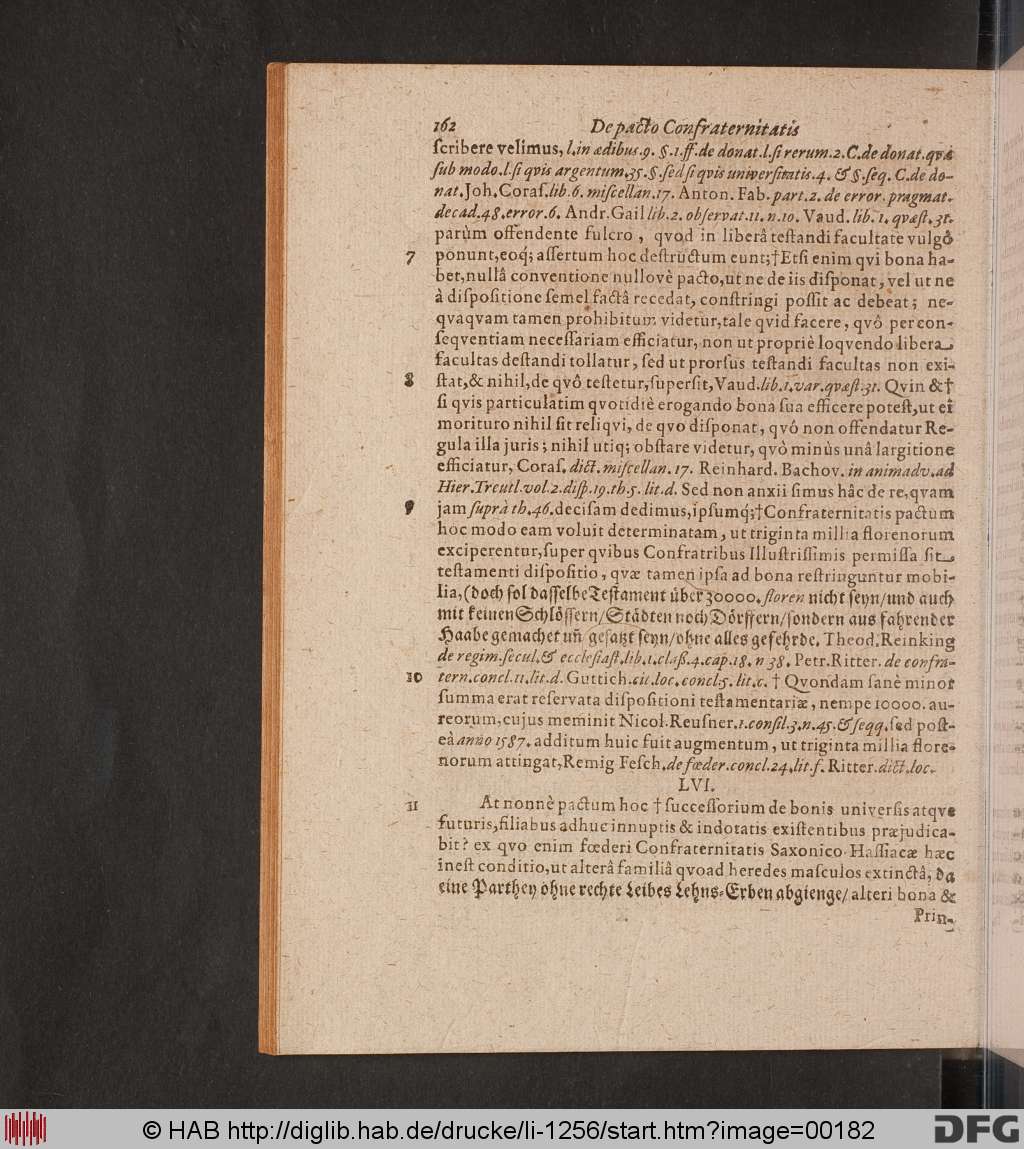 162 De pacto Confraternitatis
ſcribere velimus, l. in ædibus. 9. §. 1. ff. de donat. l. ſi rerum. 2. C. de donat. qvæ
ſub modo. l. ſi qvis argentum. 35. §. ſed ſi qvis univerſitatis. 4. & §. ſeq. C. de do-
nat. Joh. Coraſ. lib. 6. miſcellan. 17. Anton. Fab. part. 2. de error. pragmat.
decad. 48. error. 6. Andr. Gail lib. 2. obſervat. 11. n. 10. Vaud. lib. 1. qvæſt. 31.
parùm offendente fulcro, qvod in liberâ teſtandi facultate vulgô
7 ponunt, eoq́; aſſertum hoc deſtructum eunt; † Etſi enim qvi bona ha-
bet, nullâ conventione nullovè pacto, ut ne de iis diſponat, vel ut ne
à diſpoſitione ſemel factâ recedat, conſtringi poſſit ac debeat; ne-
qvaqvam tamen prohibitum videtur, tale qvid facere, qvô per con-
ſeqventiam neceſſariam efficiatur, non ut propriè loqvendo libera
facultas deſtandi tollatur, ſed ut prorſus teſtandi facultas non exi-
8 ſtat, & nihil, de qvô teſtetur, ſuperſit, Vaud. lib. 1. var. qvæſt. 31. Qvin & †
ſi qvis particulatim qvotidiè erogando bona ſua efficere poteſt, ut ei
morituro nihil ſit reliqvi, de qvo diſponat, qvô non offendatur Re-
gula illa juris; nihil utiq; obſtare videtur, qvò minùs unâ largitione
efficiatur, Coraſ. dict. miſcellan. 17. Reinhard. Bachov. in animadv. ad
Hier. Treutl. vol. 2. diſp. 19. th. 5. lit. d. Sed non anxii ſimus hâc de re, qvam
9 jam ſuprà th. 46. deciſam dedimus, ipſumq́; † Confraternitatis pactum
hoc modo eam voluit determinatam, ut triginta millia florenorum
exciperentur, ſuper qvibus Confratribus Illuſtriſſimis permiſſa ſit
teſtamenti diſpoſitio, qvæ tamen ipſa ad bona reſtringuntur mobi-
lia, (doch ſol daſſelbe Teſtament über 30000. floren nicht ſeyn/ und auch
mit keinen Schlöſſern/ Städten noch Dörffern/ ſondern aus fahrender
Haabe gemachet uñ geſatzt ſeyn/ ohne alles gefehrde. Theod. Reinking
de regim. ſecul. & eccleſiaſt. lib. 1. claß. 4. cap. 18. n 38. Petr. Ritter. de confra-
10 tern. concl. 11. lit. d. Guttich. cit. loc. concl. 5. lit. c. † Qvondam ſanè minor
ſumma erat reſervata diſpoſitioni teſtamentariæ, nempe 10000. au-
reorum, cujus meminit Nicol. Reuſner. 1. conſil. 3. n. 45. & ſeqq. ſed poſt-
eà anno 1587. additum huic fuit augmentum, ut triginta millia flore-
norum attingat, Remig Feſch. de fœder. concl. 24. lit. f. Ritter. dict. loc.
LVI.
11 At nonnè pactum hoc † ſucceſſorium de bonis univerſis atqve
futuris, filiabus adhuc innuptis & indotatis exiſtentibus præjudica-
bit? ex qvo enim fœderi Confraternitatis Saxonico-Haſſiacæ hæc
ineſt conditio, ut alterâ familiâ qvoad heredes maſculos extinctâ, da
eine Parthey ohne rechte Leibes Lehns-Erben abgienge/ alteri bona &
Prin-
© HAB http://diglib.hab.de/drucke/li-1256/start.htm?image=00182
DFG